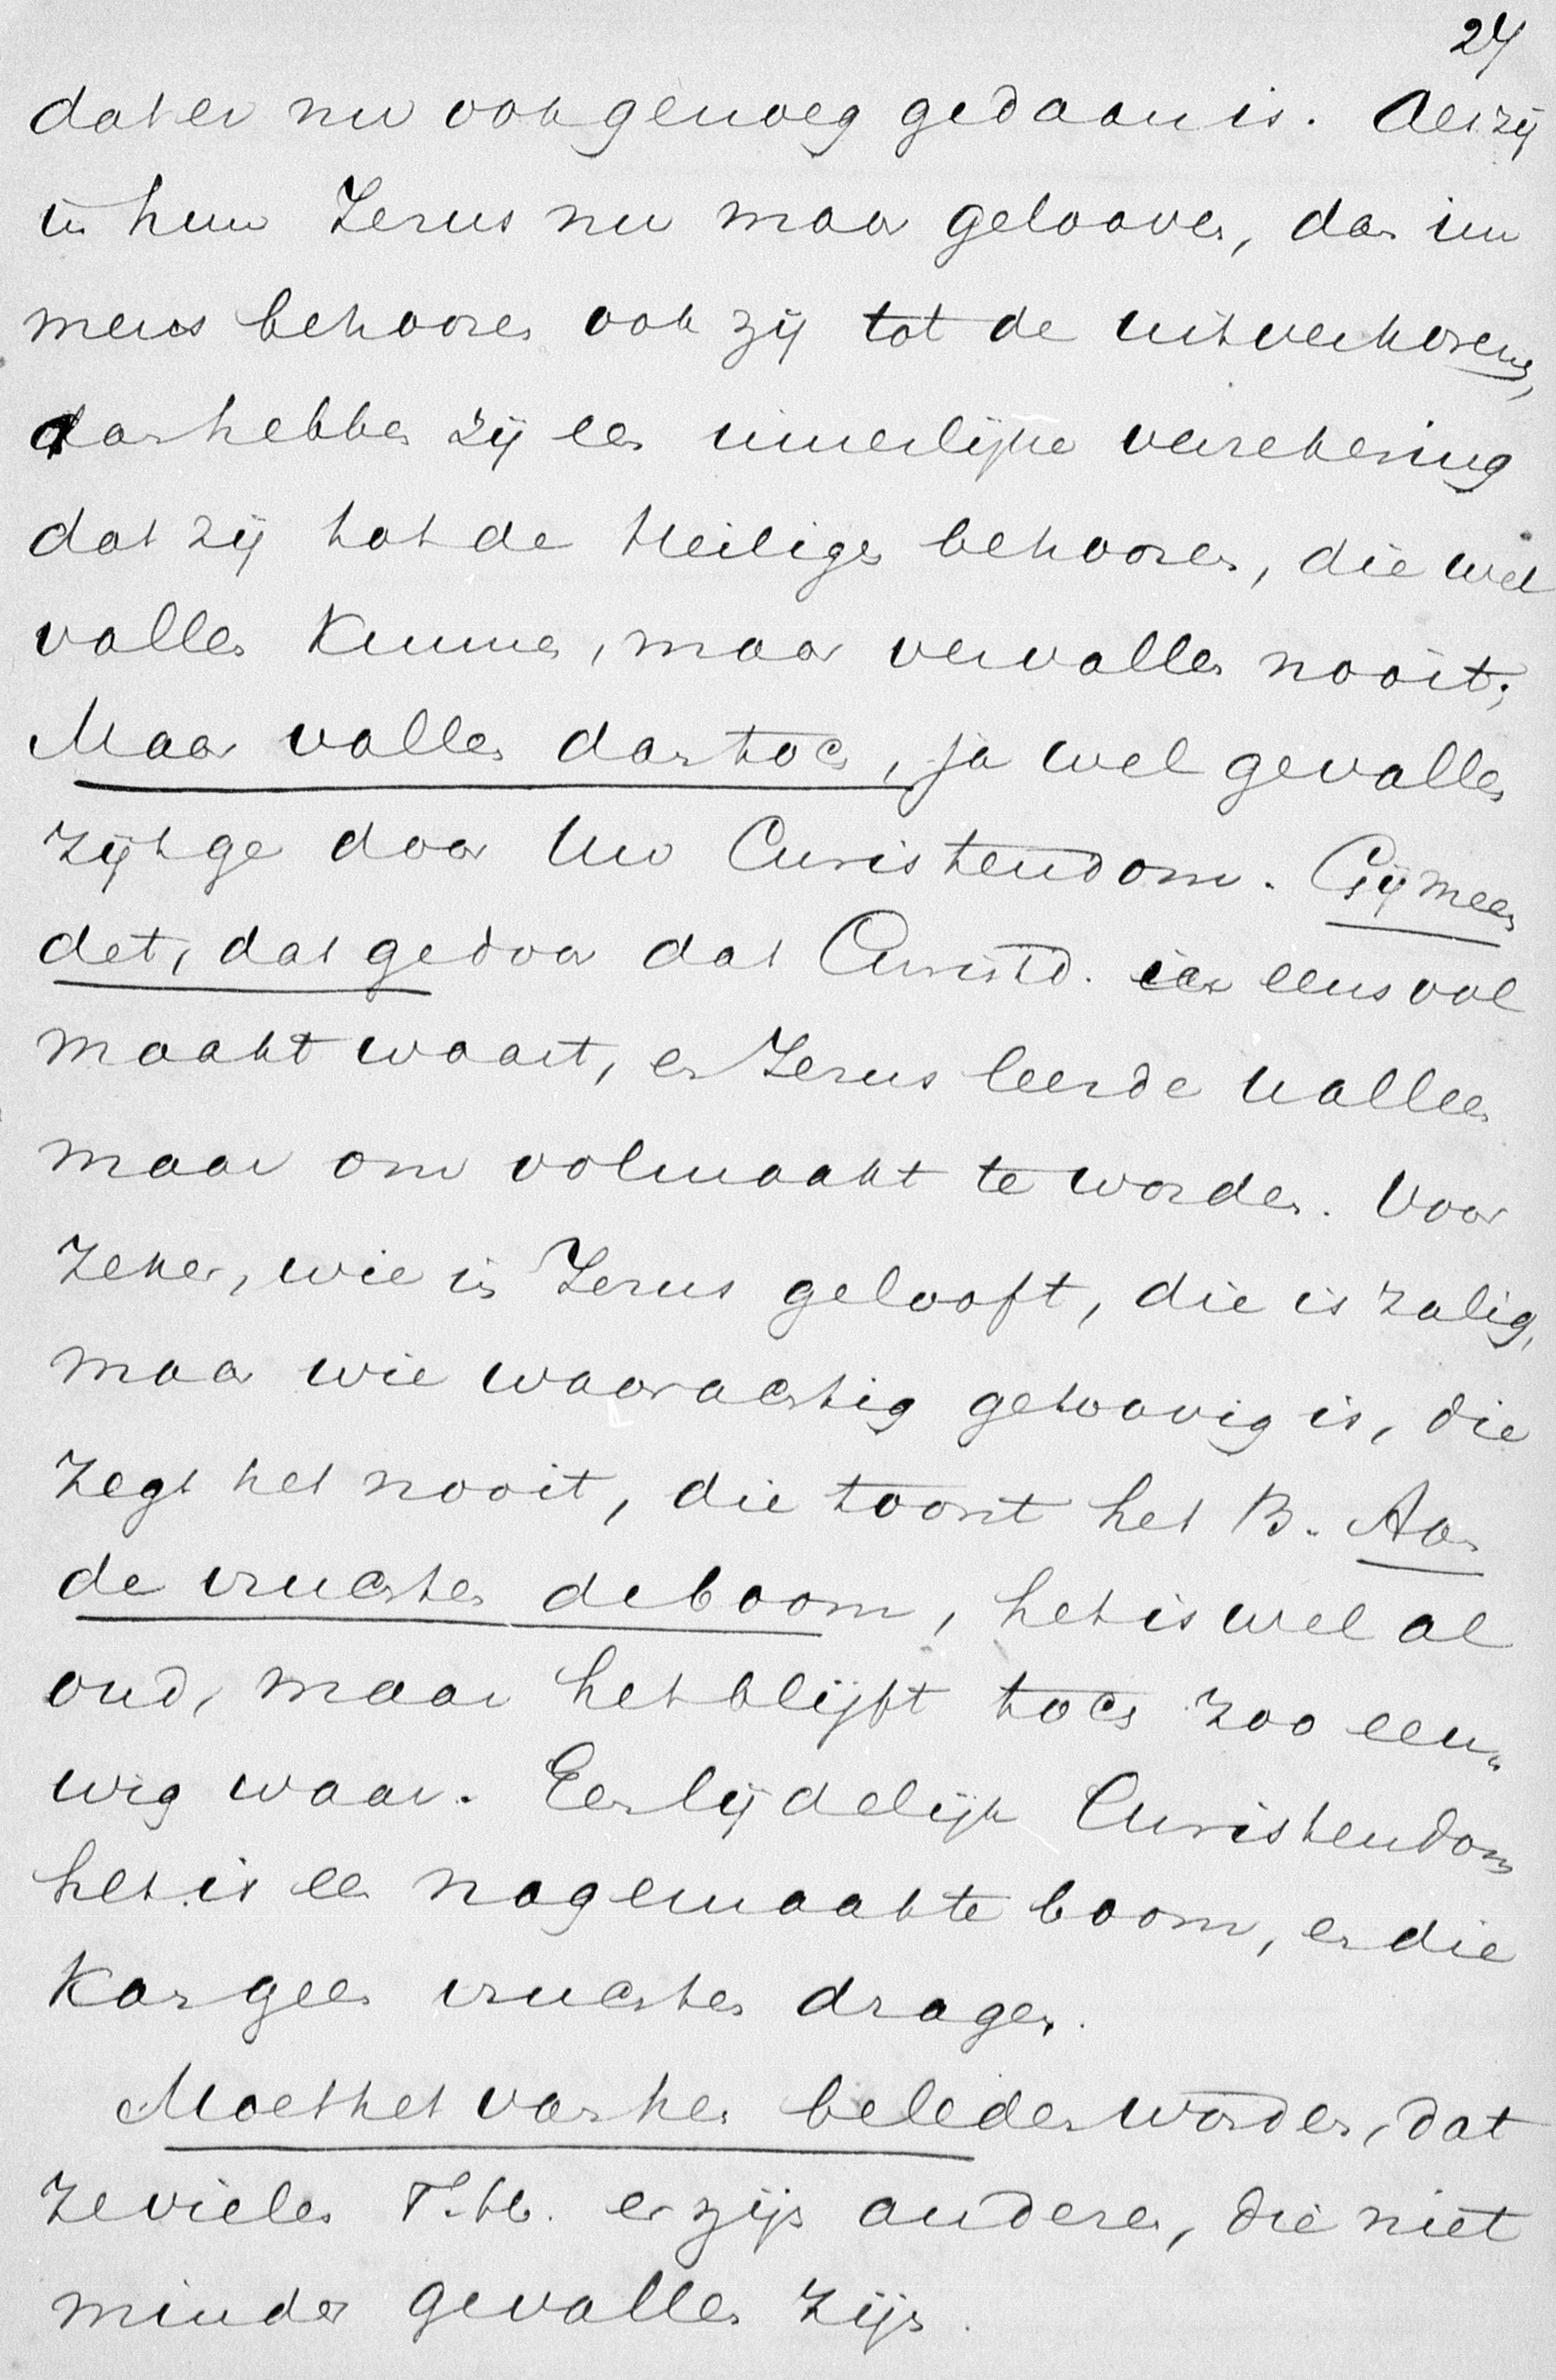 24
dat er nu ook genoeg gedaan is. Als zij
in hun Jezus nu maar gelooven, dan im
mers behooren ook zij tot de uitverkorens,
dan hebben zij een innerlijke verzekering
dat zij tot de Heiligen behooren, die wel
vallen kunnen, maar vervallen nooit;
Maar vallen dan toch, ja wel gevallen
zijt ge door Uw Christendom. Gij meen
det, dat ge door dat Christd. in eens vol
maakt waart, en Jezus leerde vallen
maar om volmaakt te worden. Voor
zeker, wie in Jezus gelooft, die is zalig,
maar wie waarachtig geloovig is, die
zegt het nooit, die toont het B. Aan
de vruchten de boom, het is wel al
oud, maar het blijft toch zoo eeu„
wig waar. Een lijdelijk Christendom
het is een nagemaakte boom, en die
kan geen vruchten dragen.
Moet het van hen beleden worden, dat
ze vielen er zijn anderen, die niet
minder gevallen zijn.